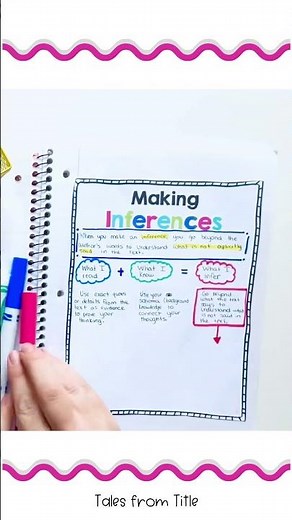 Making
Inferences
When you make an inference, you go beyond the
author's words to understand what is not explicitly
said in the text.
What I read + What I know = What I infer
Use exact quotes
or details from the
text as evidence
to prove your
thinking.
Use your
schema/background
knowledge to
connect your
thoughts.
Go beyond
what the text
says to
understand what
is not said in
the text.
Tales from Title